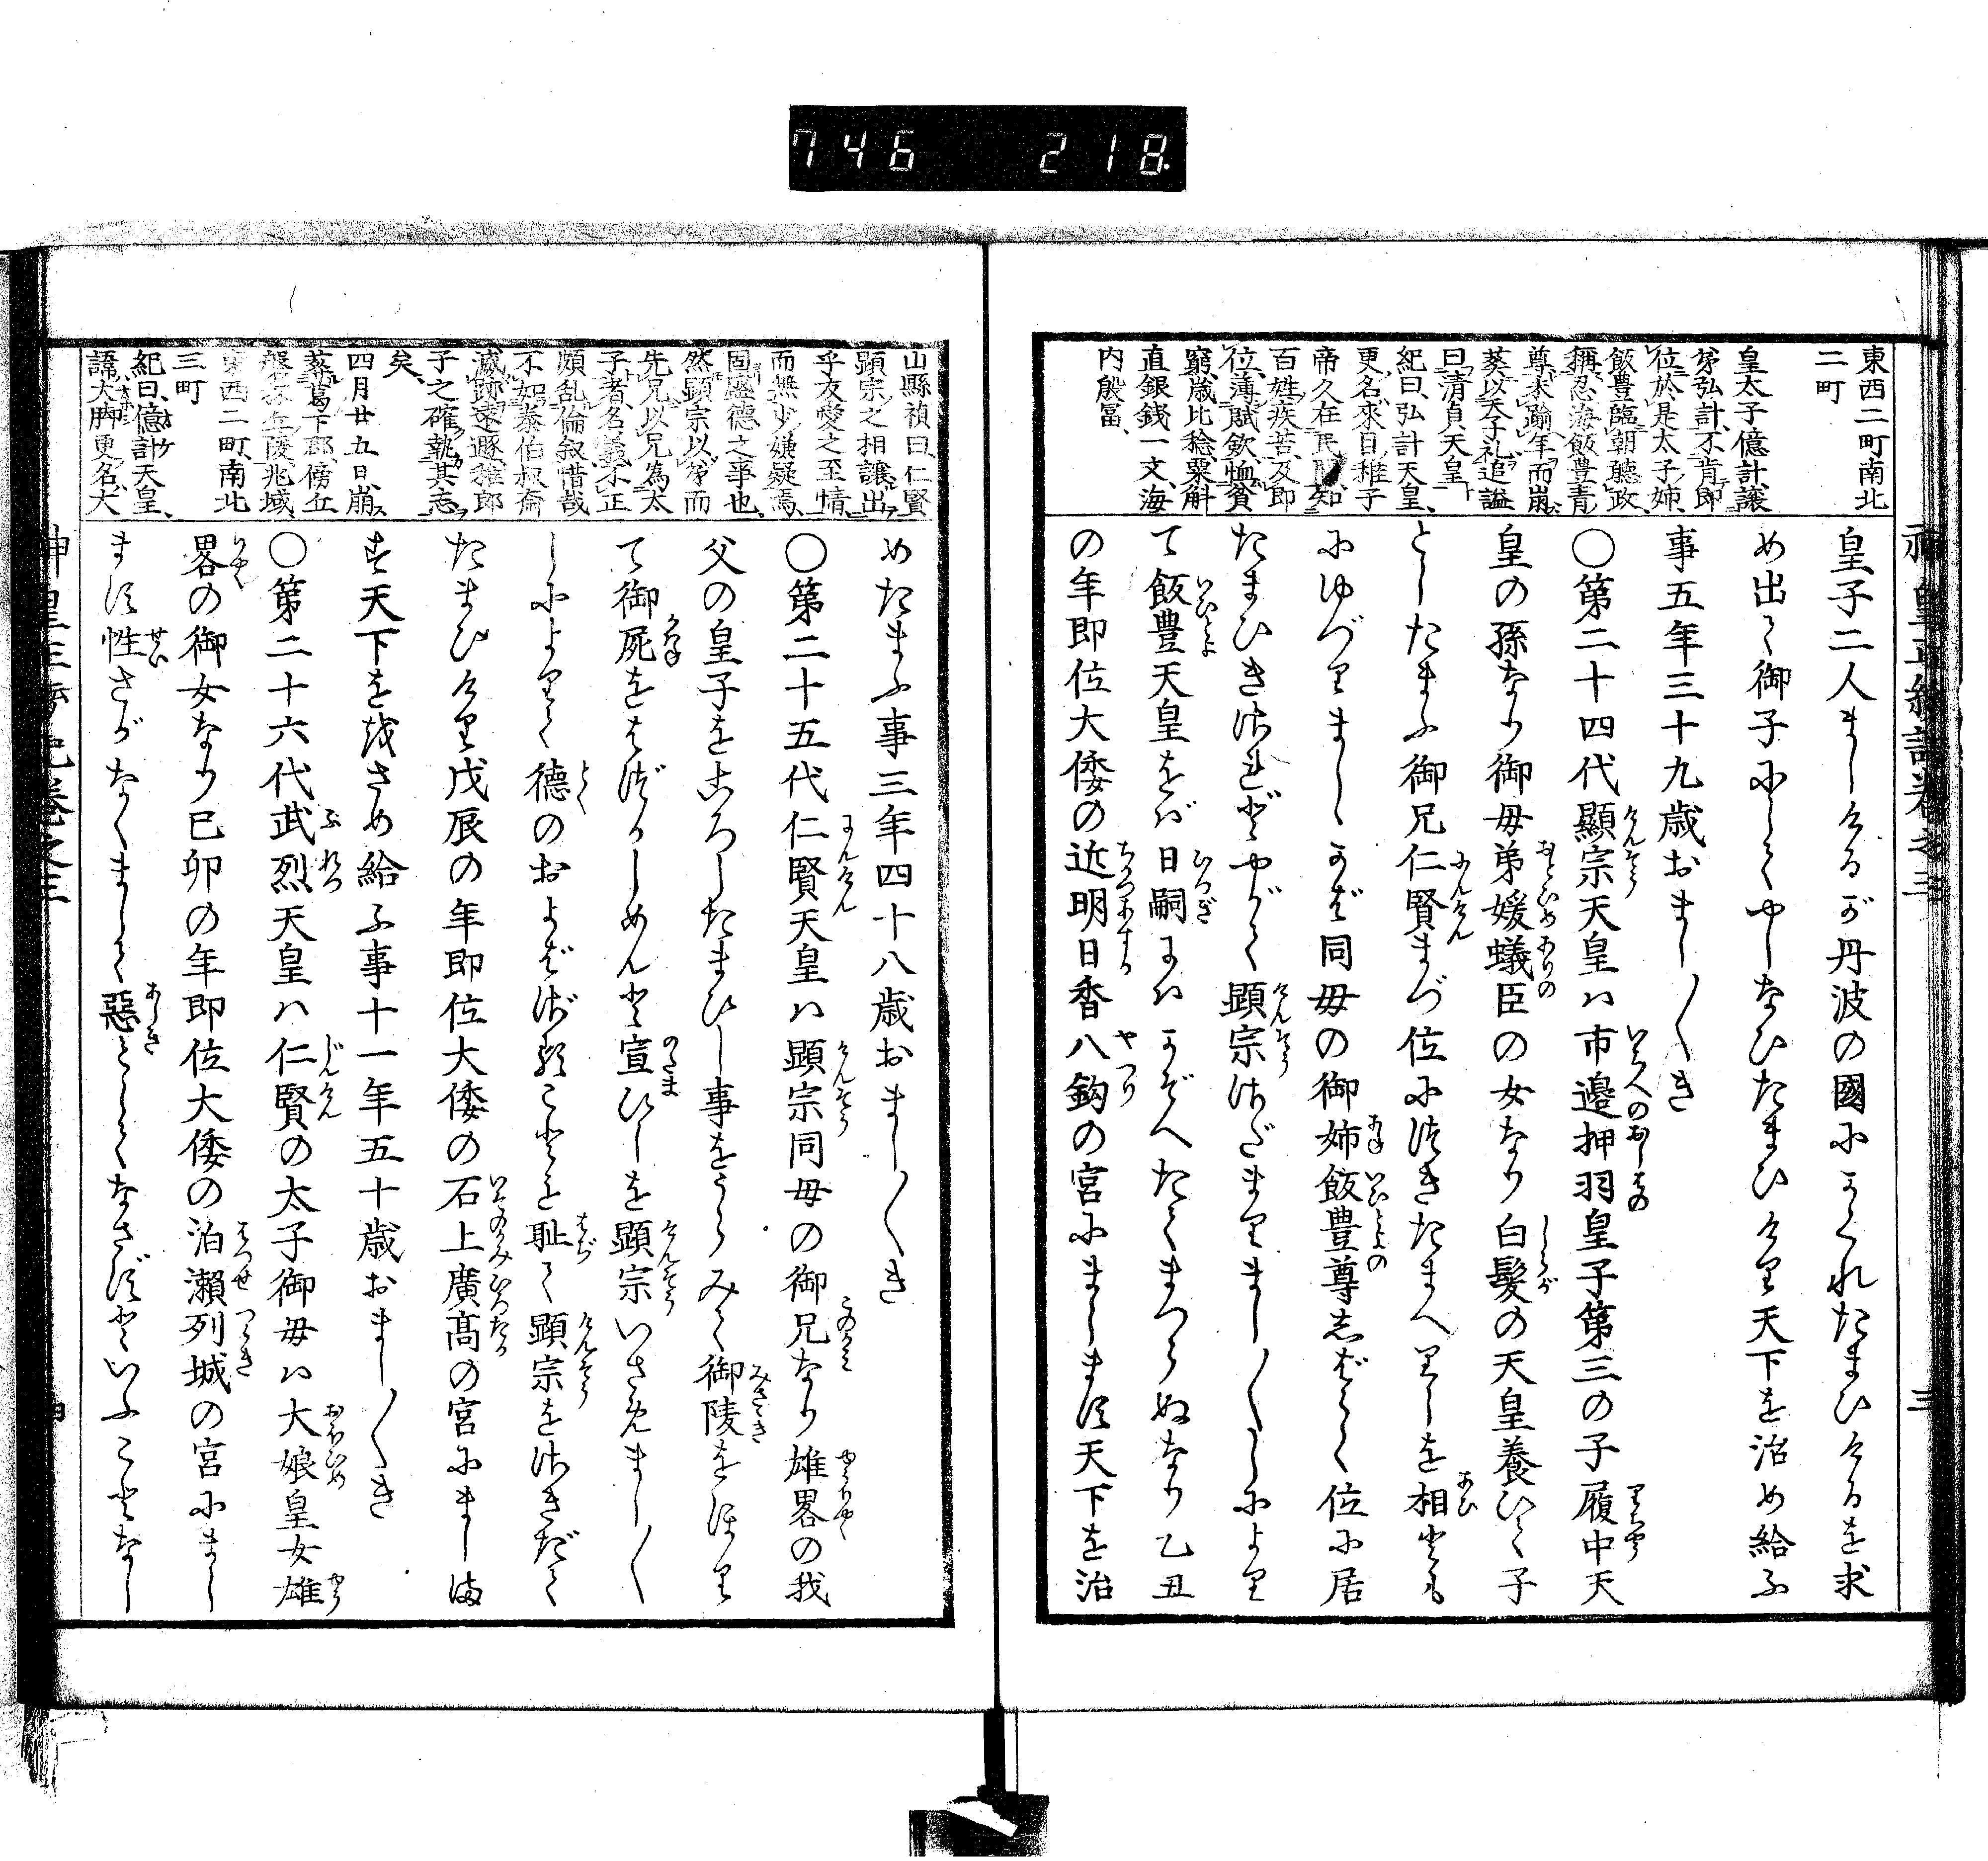 746 218
東西二町南北
二町
皇太子億計讓
弟弘計不肯即
位於是太子姉
飯豊臨朝聽政
稱忍海飯豊青
尊未踰年而崩
葬以天子礼追謚
曰清貞天皇
紀曰弘計天皇
更名來目稚子
帝久在民間知
百姓疾苦及即
位薄賦歛恤貧
窮歳比稔粟斛
直銀錢一文海
内殷冨
皇子二人ましけるが丹波の國にかくれたまひけるを求
め出て御子にしてやしなひたまひけり天下を治め給ふ
事五年三十九歳おまし〱き
〇第二十四代顯宗天皇ハ市邉押羽皇子第三の子履中天
皇の孫なり御毋弟媛蟻臣の女なり白髮の天皇養ひて子
としたまふ御兄仁賢まづ位につきたまへりしを相ともに
ゆづりましゝかば同毋の御姉飯豊尊しばらく位に居
たまひきされどやがて顕宗さだまりまし〱しによりて
飯豊天皇をば日嗣にはかぞへたてまつらぬなり乙丑
の年即位大倭の近明日香八鈎の宮にまします天下を治
山縣禎曰仁賢
顕宗之相讓出
乎友愛之至情
而無少嫌疑焉
固盛德之事也
然顕宗以弟而
先兄以兄為太
子者名義不正
頗乱倫叙惜哉
不如泰伯叔齋
滅跡遠遯稚郎
子之確執其志
矣
四月廿五日崩
葬葛下郡傍丘
磐坏丘陵兆域
東西二町南北
三町
紀曰億計天皇
諱大脚更名大
めたまふ事三年四十八歳おまし〱き
〇第二十五代仁賢天皇ハ顕宗同毋の御兄なり雄畧の我
父の皇子をころしたまひし事をうらみて御陵をほり
て御屍をはづかしめんと宣ひしを顕宗いさめまし〱
しによりて德のおよばざることを耻て顕宗をさきだて
たまひけり戊辰の年即位大倭の石上廣髙の宮にましま
す天下をおさめ給ふ事十一年五十歳おまし〱き
〇第二十六代武烈天皇ハ仁賢の太子御毋ハ大娘皇女雄
畧の御女なり己卯の年即位大倭の泊瀨列城の宮にまし
ます性さがなくましまして惡としてなさずといふことなし